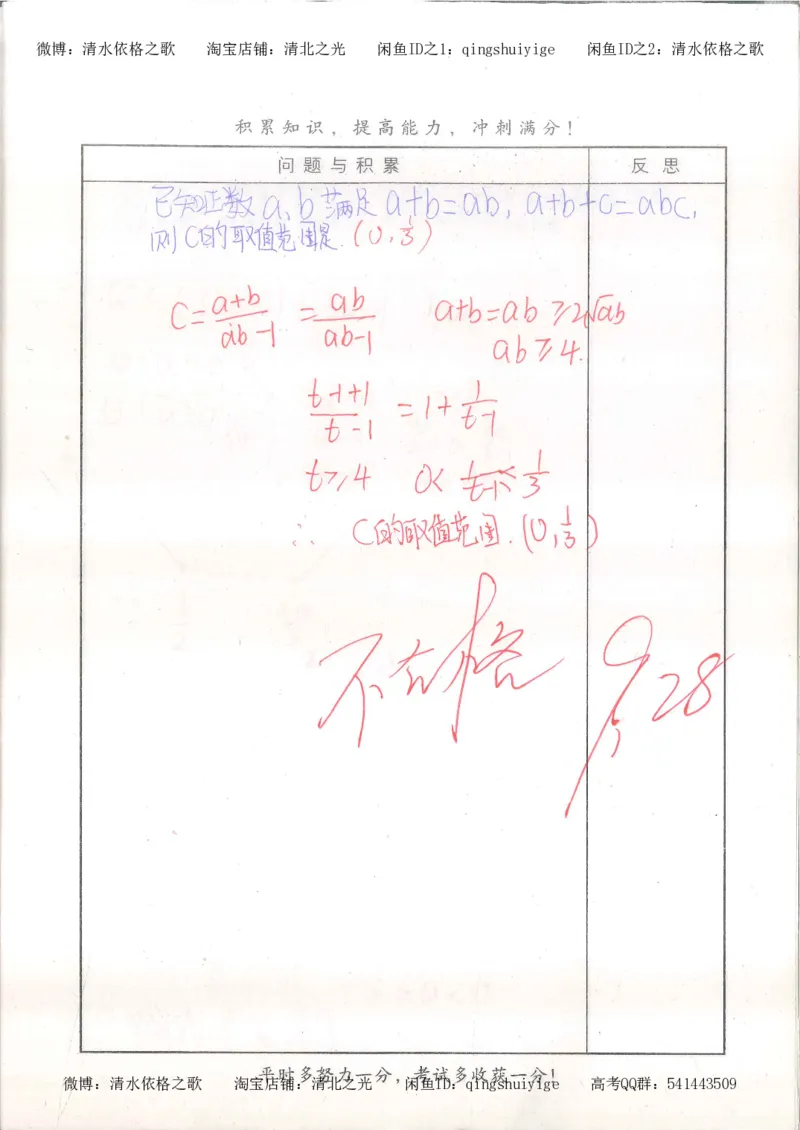 微博：清水依格之歌 淘宝店铺：清北之光 闲鱼ID之1：qingshuiyige 闲鱼ID之2：清水依格之歌
积累知识，提高能力，冲刺满分！
问题与积累 反思
已知正数a,b满足a+b=ab, a+b+c=abc,
则C的取值范围是.(0,1/3)
C=(a+b)/(ab-1)=ab/(ab-1) a+b=ab≥2√ab
ab≥4.
(t-1+1)/(t-1)=1+1/(t-1)
t≥4 0<1/(t-1)≤1/3
∴ C的取值范围.(0,1/3)
不合格 9.28
平时多努力一分，考试多收获一分！
微博：清水依格之歌 淘宝店铺：清北之光 闲鱼ID：qingshuiyige 高考QQ群：541443509